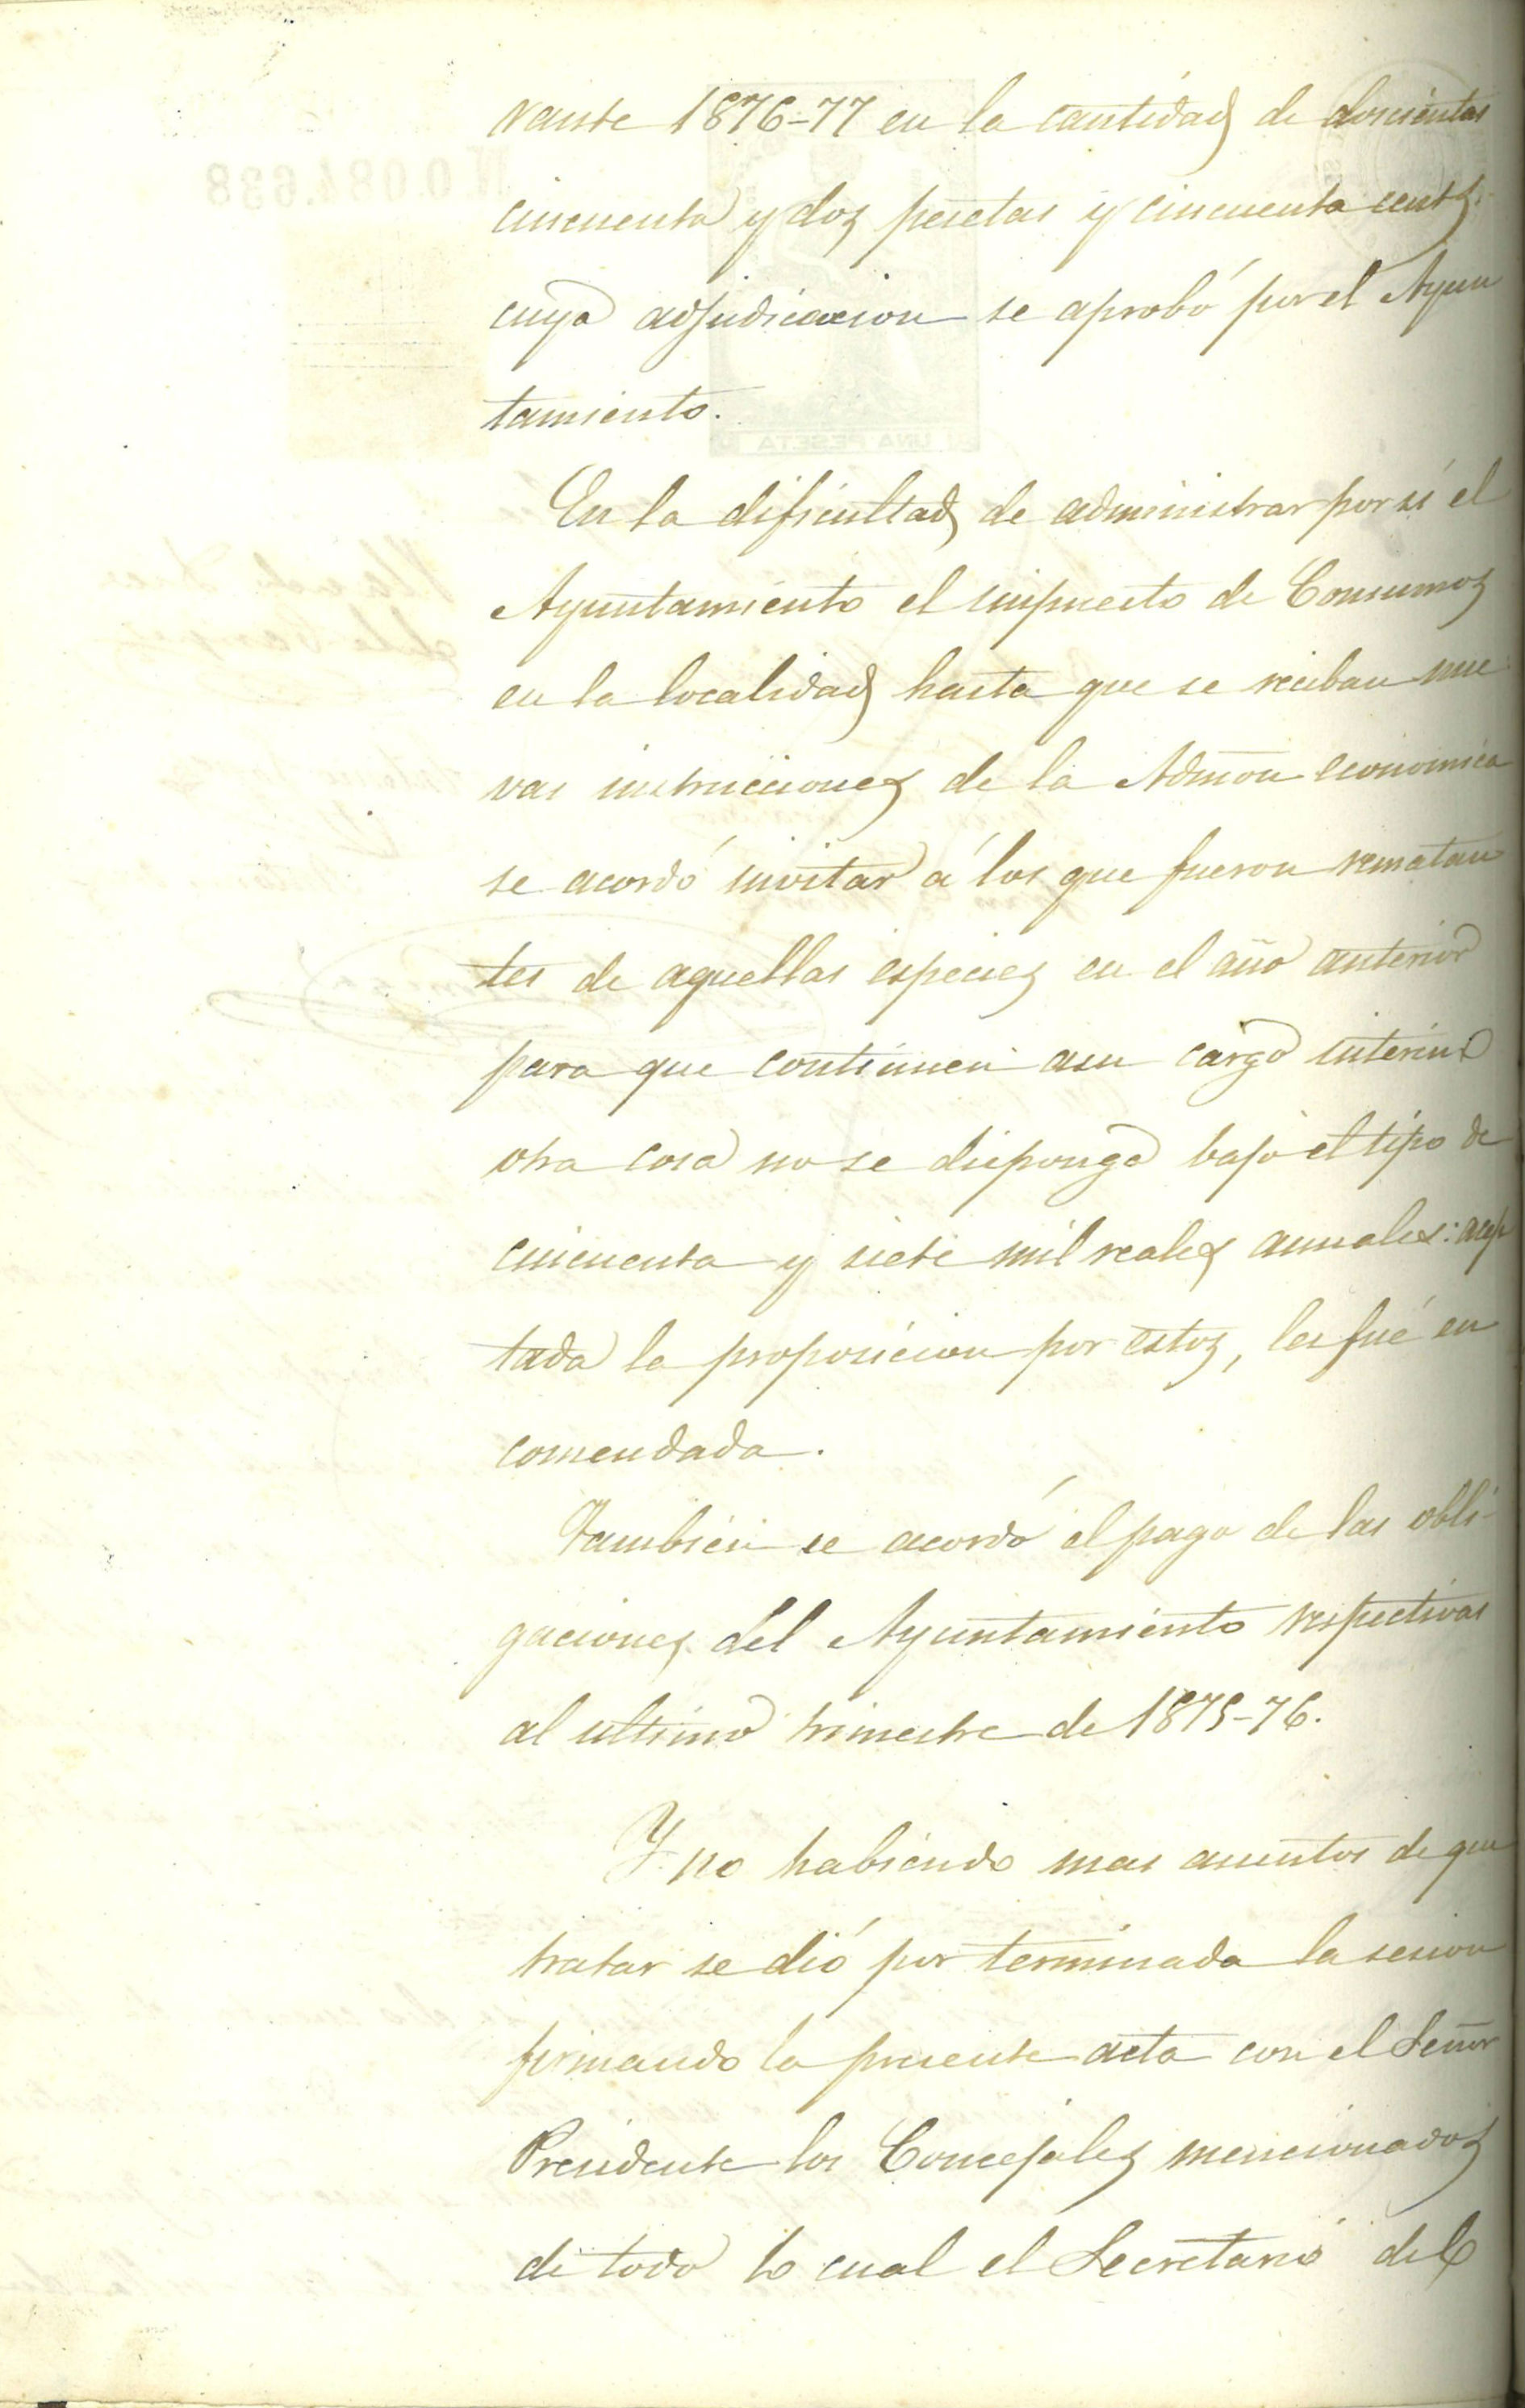 rante 1876-77 en la cantidad de doscientas
cincuenta y dos pesetas y cincuenta cents.
cuya adjudicacion se aprobó por el Ayun
tamiento.
En la dificultad de administrar por si el
Ayuntamiento el impuesto de Consumos
en la localidad hasta que se reciban nue
vas instrucciones de la Admon economica
se acordó invitar á los que fueron rematan
tes de aquellas especies en el año anterior
para que continuen asu cargo interin
otra cosa no se disponga bajo el tipo de
cincuenta y siete mil reales anuales: acep
tada la proposicion por estos, les fué en
comendada.
Tambien se acordó el pago de las obli-
gaciones del Ayuntamiento respectivas
al ultimo trimestre de 1875-76.
Y no habiendo mas asuntos de que
tratar se dió por terminada la sesion
firmando la presente acta con el Señor
Presidente los Concejales mencionados
de todo lo cual el Secretario del
Nº 0.084.638
UNA PESETA